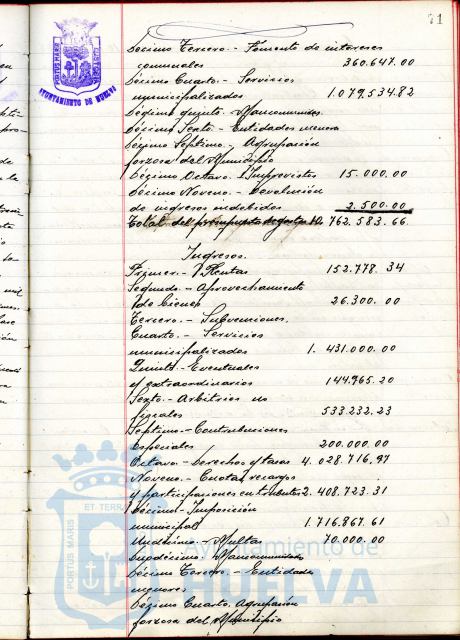 71
Decimo Tercero.- Fomento de intereses
comunales 360.647.00
Décimo Cuarto.- Servicios
municipalizados 1.079,534.82
Décimo quinto.- Mancomunidades
Décimo Sexto.- Entidades menores
Décimo Septimo.- Agrupación
forzosa del Municipio
Décimo Octavo.- Imprevistos 15.000.00
Décimo Noveno.- Devolución
de ingresos indebidos 2.500.00
Total del presupuesto de gastos 12.762.583.66.
Ingresos.
Primero.- Rentas 152.778.34
Segundo.- Aprovechamiento
de bienes 26.300.00
Tercero.- Subvenciones.
Cuarto.- Servicios
municipalizados 1.431.000.00
Quinto.- Eventuales
y extraordinarios 144.965.20
Sexto.- Arbitrios no
fiscales 533.232.23
Septimo.- Contribuciones
Especiales 200.000.00
Octavo.- Derechos y tasas 4.028.716,97
Noveno.- Cuotas, recargos
y participaciones en tributos 2.408.723.31
Décimo.- Imposición
municipal 1.716.867.61
Undécimo.- Multas 70.000.00
Duodécimo.- Mancomunidades
Décimo Tercero.- Entidades
menores
Décimo Cuarto. Agrupación
forzosa del Municipio
AYUNTAMIENTO DE HUELVA
PORTUS MARIS
ET TERRAE
Ayuntamiento de
HUELVA